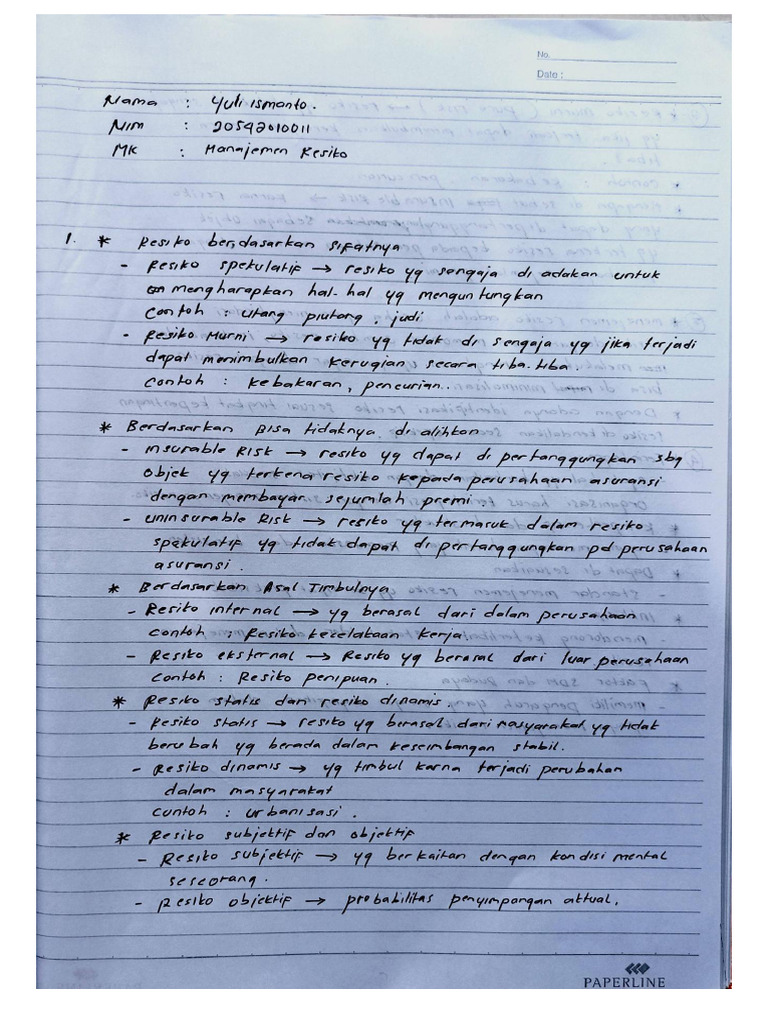 No.
Date :
Nama : Yuli Ismanto.
NIM : 20542010011
MK : Manajemen Resiko
1. * Resiko berdasarkan sifatnya
- Resiko spekulatif → resiko yg sengaja di adakan untuk
mengharapkan hal-hal yg menguntungkan
contoh : utang piutang, judi
- Resiko Murni → resiko yg tidak di sengaja yg jika terjadi
dapat menimbulkan kerugian secara tiba-tiba.
contoh : kebakaran, pencurian.
* Berdasarkan Bisa tidaknya di alihkan
- Insurable Risk → resiko yg dapat di pertanggungkan sbg
objek yg terkena resiko kepada perusahaan asuransi
dengan membayar sejumlah premi.
- Uninsurable Risk → resiko yg termasuk dalam resiko
spekulatif yg tidak dapat di pertanggungkan pd perusahaan
asuransi.
* Berdasarkan Asal Timbulnya
- Resiko internal → yg berasal dari dalam perusahaan
contoh : Resiko kecelakaan kerja
- Resiko eksternal → Resiko yg berasal dari luar perusahaan
contoh : Resiko penipuan.
* Resiko statis dan resiko dinamis.
- Resiko statis → resiko yg berasal dari masyarakat yg tidak
berubah yg berada dalam keseimbangan stabil.
- Resiko dinamis → yg timbul karna terjadi perubahan
dalam masyarakat
contoh : urbanisasi.
* Resiko subjektif dan objektif
- Resiko subjektif → yg berkaitan dengan kondisi mental
seseorang.
- Resiko objektif → probabilitas penyimpangan aktual.
PAPERLINE